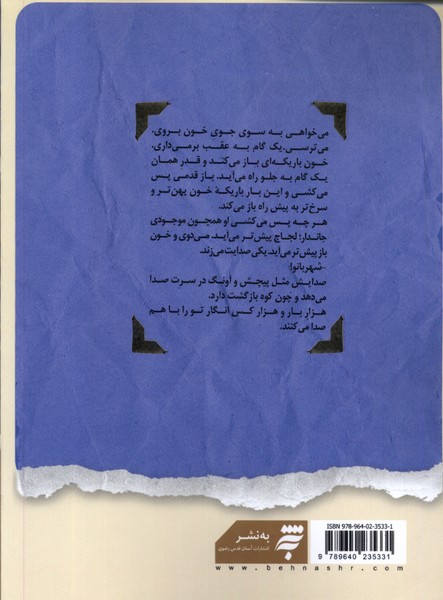 می‌خواهی به سوی جوی خون بروی.
می‌ترسی. یک گام به عقب برمی‌داری.
خون باریکه‌ای باز می‌کند و قدر همان
یک گام به جلو راه می‌آید. باز قدمی پس
می‌کشی و این بار باریکهٔ خون پهن‌تر و
سرخ‌تر به پیش راه باز می‌کند.
هر چه پس می‌کشی او همچون موجودی
جاندار؛ لجاج پیش‌تر می‌آید. می‌دوی و خون
باز پیش‌تر می‌آید. یکی صدایت می‌زند.
-شهربانو!
صدایش مثل پیچش و آونگ در سرت صدا
می‌دهد و چون کوه بازگشت دارد.
هزار بار و هزار کس انگار تو را با هم
صدا می‌کنند.
به‌نشر
انتشارات آستان قدس رضوی
ISBN 978-964-02-3533-1
9 789640 235331
www.behnashr.com